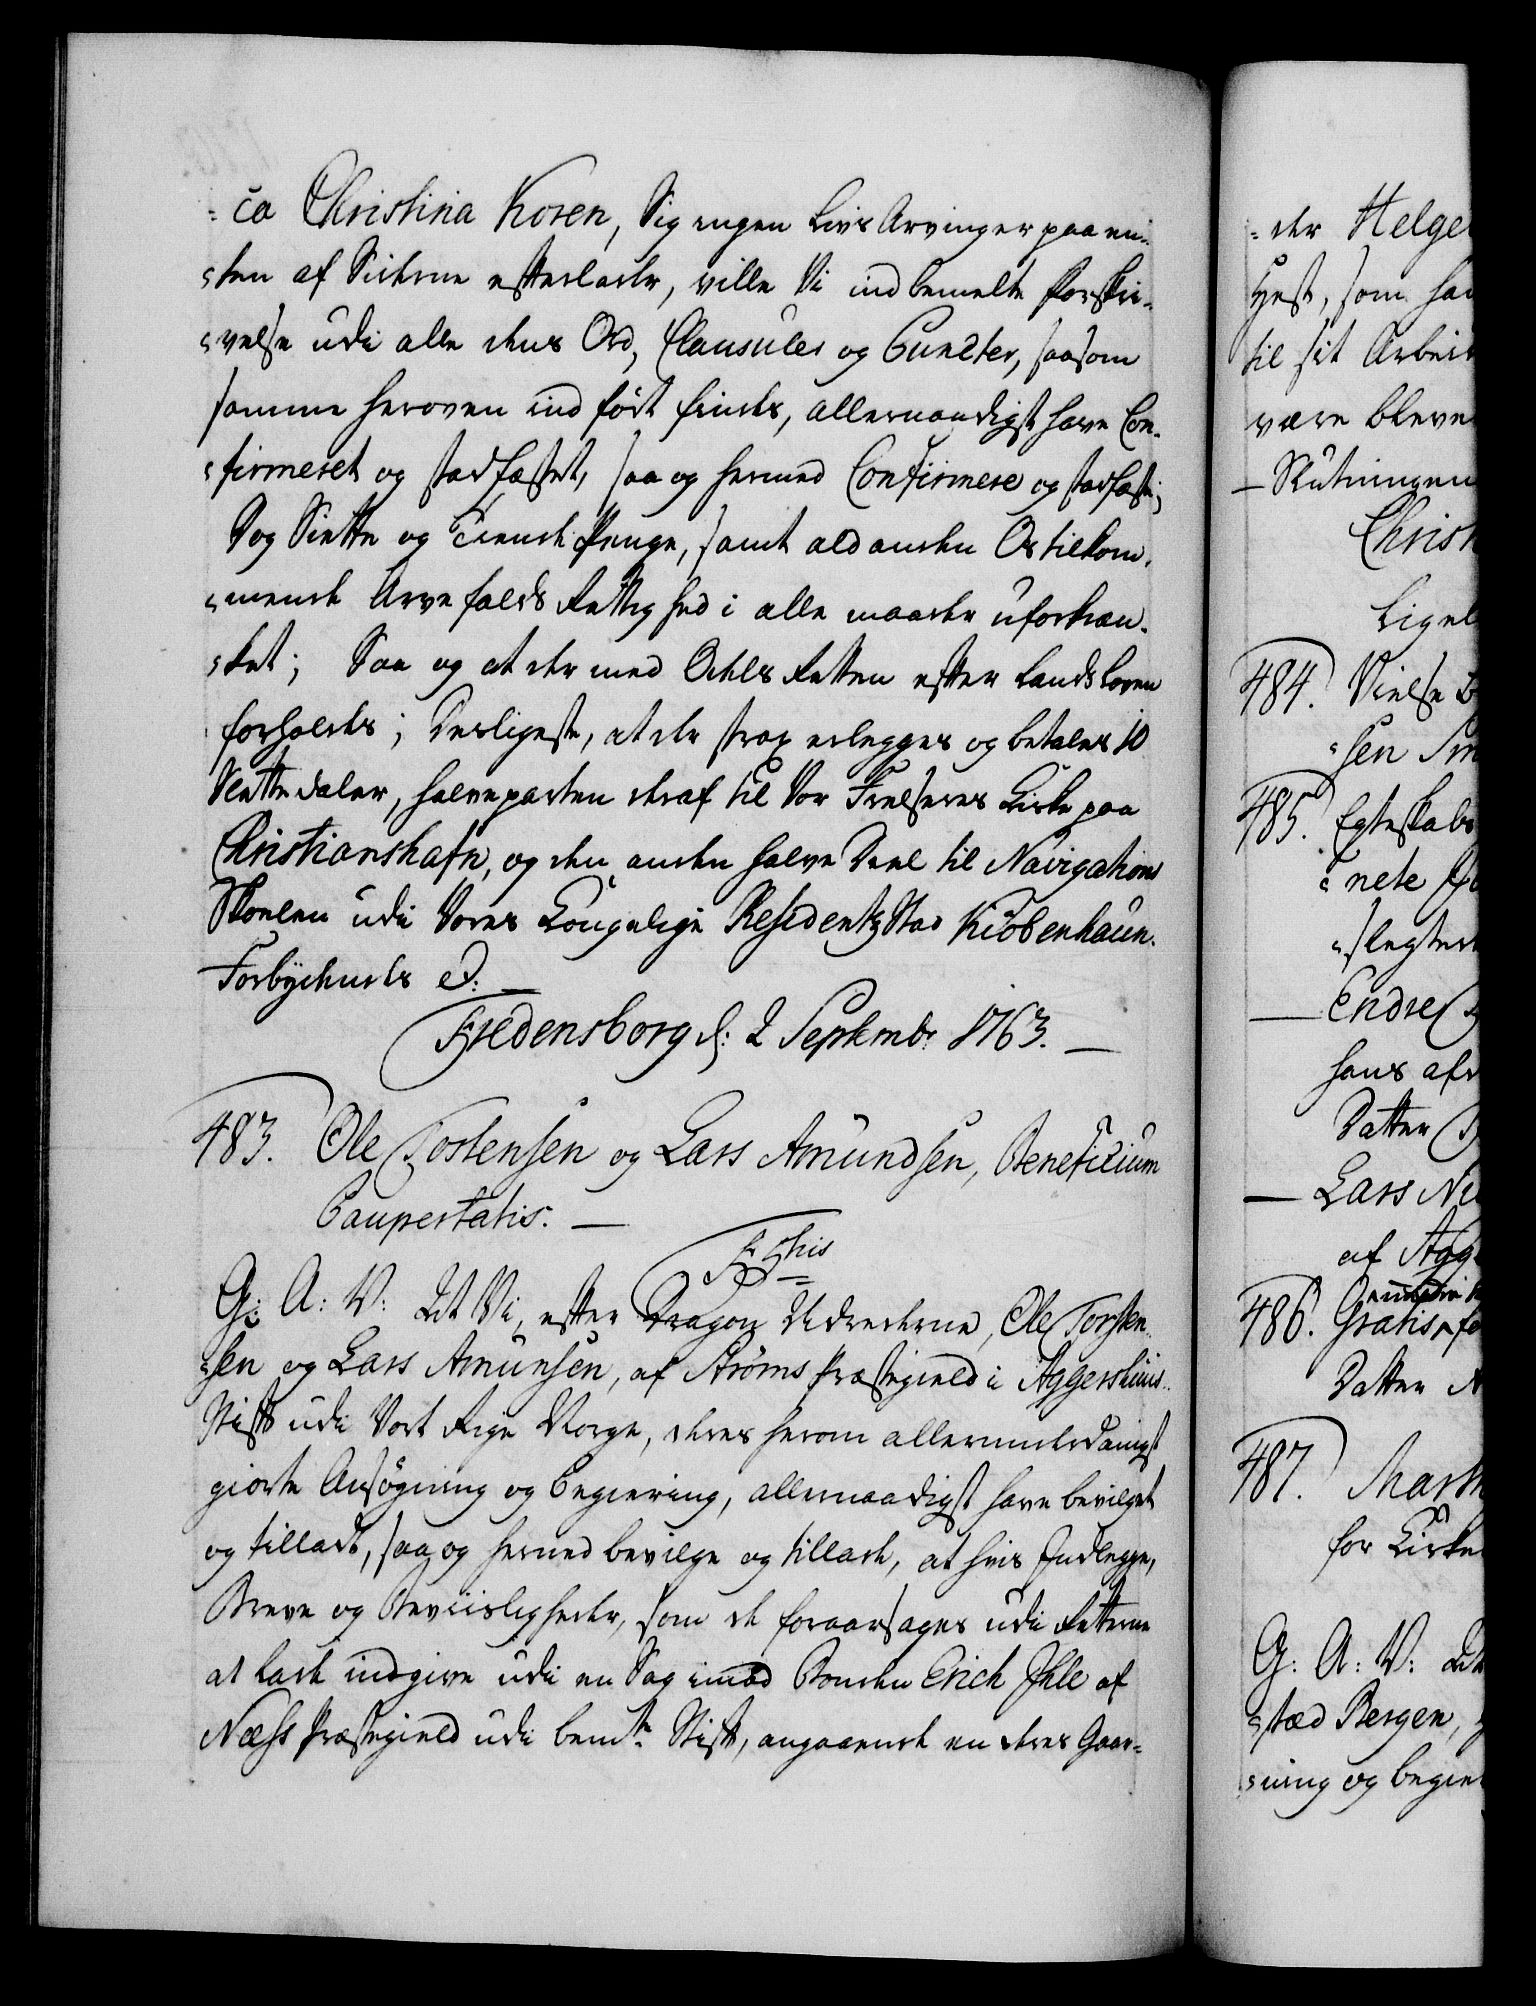 =ca Christina Koren, Sig ingen Livs Arvinger paa en=
=ten af Siderne efterlade, ville Vi ind bemelte Forskri=
=velse udi alle dens Ord, Clausuler og Puncter, saasom
samme heroven indført findes, allernaadigst have Con=
=firmeret og stadfæstet, saa og hermed Confirmere og stadfæste;
Dog Siette og Tiende Penge, samt ald anden Os tilkom=
=mende Arvefalds Rettighed i alle maader uforkræn=
=ket; Saa og at der med Odels Retten efter Landsloven
forholdes; Desligeste, at der strax erlegges og betales 10
Slettedaler, halveparten deraf til Vor Frelseres Kirke paa
Christianshafn, og den anden halve Deel til Navigations
Skolen udi Vores Kongelige Residentz Stad Kiöbenhaun.
Forbydendes &:
Fredensborg d: 2 Septembr 1763.
483. Ole Tostensen og Lars Amundsen, Beneficium
Paupertatis.
G: A: V: At Vi, efter Dragon Udrederne, Ole Torsten=
=sen og Lars Amunsen, af Ströms Præstegield i Aggershuus
Stift udi Vort Rige Norge, deres herom allerunderdanigst
giorte Ansøgning og begiering, allernaadigst have bevilget
og tilladt, saa og hermed bevilge og tillade, at hvis Indlegge,
Breve og Beviisligheder, som de foraarsages udi Retterne
at lade indgive udi en Sag imod Bonden Erich Ihle af
Næss Præstegield udi bemte Stift, angaaende en deres Gaar=
=der Helge
Hest, som ha
til sit Arbei
være bleve
Skutningen
Christ
Ligel
484. Vielse
=sen Sm
485. Egteskabs
=nete
=slegted
Endre
hans afd
Datter
Lars Ni
af Agg
486. Gratis
Datter
487. Marth
for Kirke
G: A: V: At
=stæd Bergen,
=ning og begie